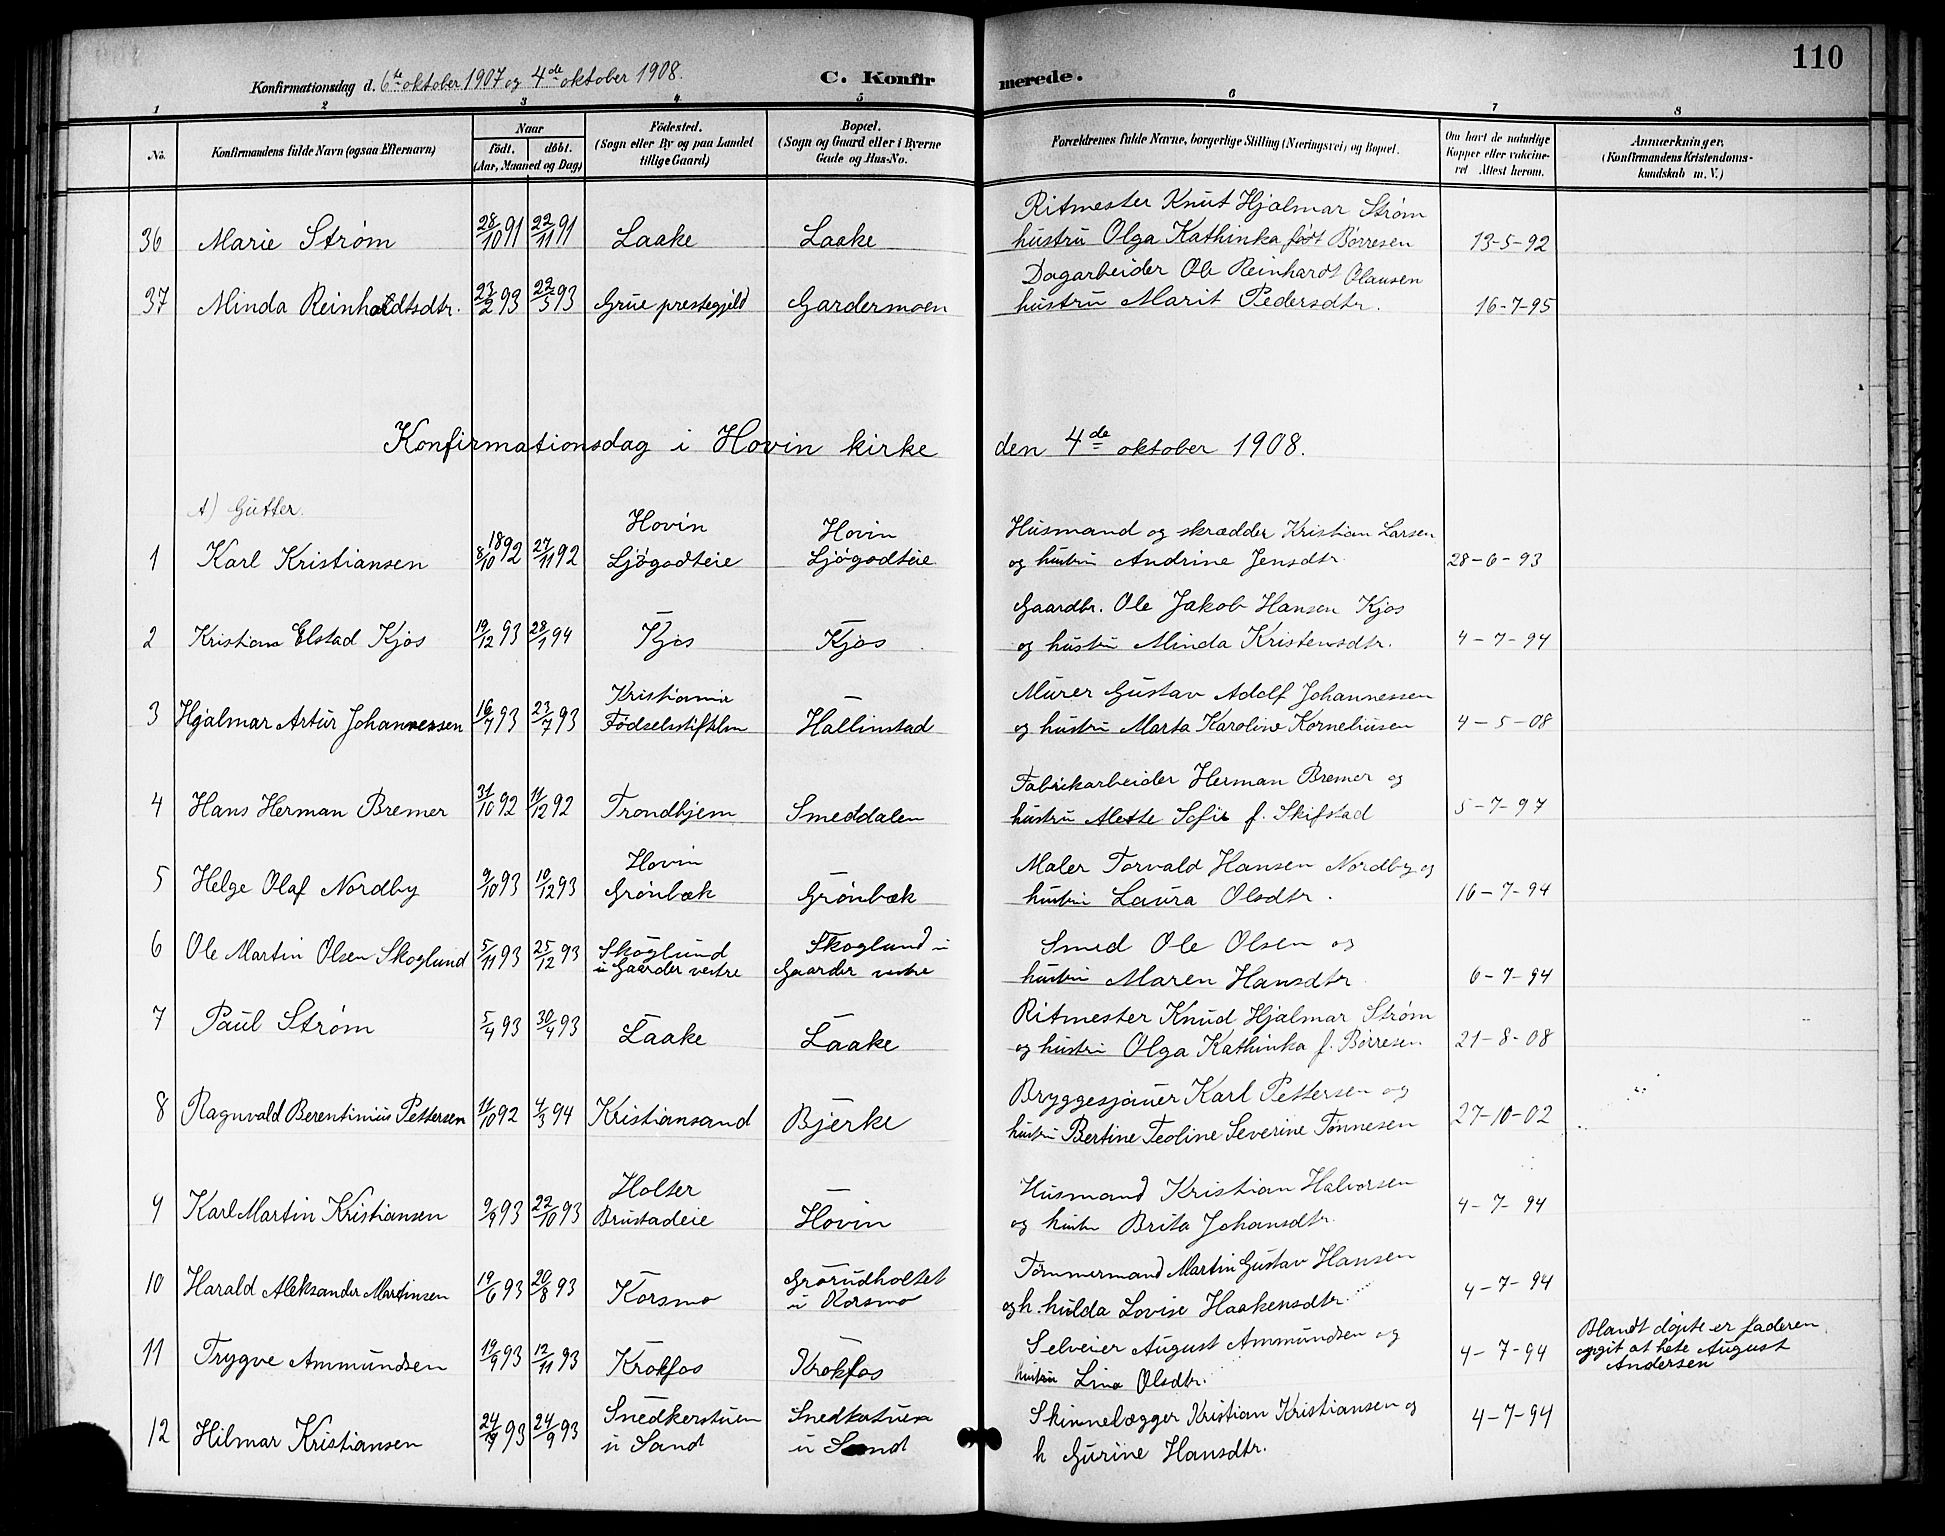 110
Konfirmationsdag d. 6te oktober 1907 og 4de oktober 1908.
C. Konfirmerede.
1 2 3 4 5 6 7 8
No.
Konfirmandens fulde Navn (ogsaa Efternavn)
Naar
født. døbt.
(Aar, Maaned og Dag)
Fødested.
(Sogn eller By og paa Landet
tillige Gaard)
Bopæl.
(Sogn og Gaard eller i Byerne
Gade og Hus-No.
Forældrenes fulde Navne, borgerlige Stilling (Næringsvei) og Bopæl.
Om havt de naturlige
Kopper eller vakcine-
ret Attest herom.
Anmærkninger,
(Konfirmandens Kristendoms-
kundskab m. V.)
Ritmester Knut Hjalmar Strøm
36 Marie Strøm 28/10 91 22/11 91 Laake Laake hustru Olga Kathinka født Børresen 13-5-92
Dagarbeider Ole Reinhardt Olausen
37 Minda Reinhardtsdtr. 23/2 93 22/5 93 Grue prestegjeld Gardermoen hustru Marit Pedersdtr. 16-7-95
Konfirmationsdag i Hovin kirke den 4de oktober 1908.
A) Gutter.
Hovin Hovin Husmand og skrædder Kristian Larsen
1 Karl Kristiansen 8/10 1892 27/11 92 Ljøgodteie Ljøgodteie og hustru Andrine Jensdtr 28-6-93
Gaardbr. Ole Jakob Hansen Kjos
2 Kristian Elstad Kjos 19/12 93 28/1 94 Kjos Kjos og hustru Minda Kristensdtr. 4-7-94
Kristiania Murer Gustav Adolf Johannessen
3 Hjalmar Artur Johannessen 16/7 93 23/7 93 Fødselsstiftelsen Hallinstad og hustru Marta Karoline Korneliusen 4-5-08
Fabrikarbeider Herman Bremer og
4 Hans Herman Bremer 31/10 92 11/12 92 Trondhjem Smeddalen hustru Alette Sofie f. Skifstad 5-7-97
Hovin Maler Torvald Hansen Nordby og
5 Helge Olaf Nordby 9/10 93 10/12 93 Grønbæk Grønbæk hustru Laura Olsdtr. 16-7-94
6 Ole Martin Olsen Skoglund 5/11 93 25/12 93 Skoglund Skoglund u Smed Ole Olsen og
u Gaarder vestre Gaarder vestre hustru Maren Hansdtr 6-7-94
Ritmester Knud Hjalmar Strøm
7 Paul Strøm 5/4 93 30/4 93 Laake Laake og hustru Olga Kathinka f. Børresen 21-8-08
Bryggesjauer Karl Pettersen og
8 Ragnvald Berentinius Pettersen 11/10 92 4/3 94 Kristiansand Bjerke hustru Bertine Teoline Severine Tønnesen 27-10-02
Holter Husmand Kristian Halvorsen
9 Karl Martin Kristiansen 9/9 93 22/10 93 Brustadeie Hovin og hustru Brita Johansdtr. 4-7-94
Grorudholtet Tømmermand Martin Gustav Hansen
10 Harald Aleksander Martinsen 19/6 93 20/8 93 Korsmo u Korsmo og h. Hulda Lovise Haakensdtr. 4-7-94
Selveier August Ammundsen og
11 Trygve Ammundsen 19/9 93 12/11 93 Krokfos Krokfos hustru Lina Olsdtr. 4-7-94
Blandt døpte er faderen
opgit at hete August
Andersen
Snedkerstuen Snedkerstuen Skinnelægger Kristian Kristiansen og
12 Hilmar Kristiansen 24/9 93 u Sand u Sand h Gurine Hansdtr. 4-7-94
24/9 93